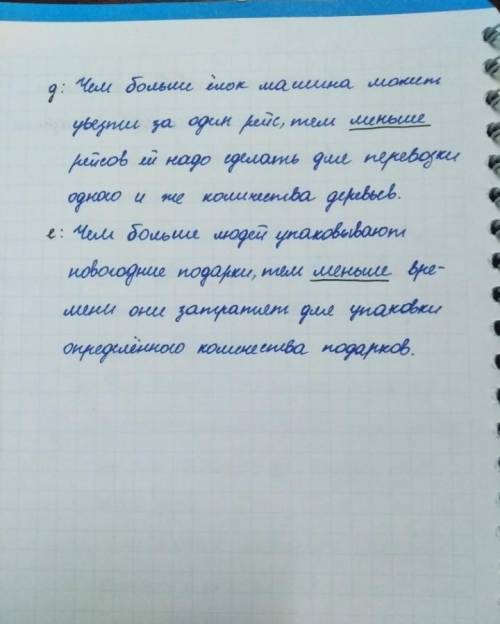 д: Чем больше ёлок машина может
увезти за один рейс, тем меньше
рейсов ей надо сделать для перевозки
одного и же количества деревьев.
е: Чем больше людей упаковывают
новогодние подарки, тем меньше вре-
мени они затратят для упаковки
определённого количества подарков.